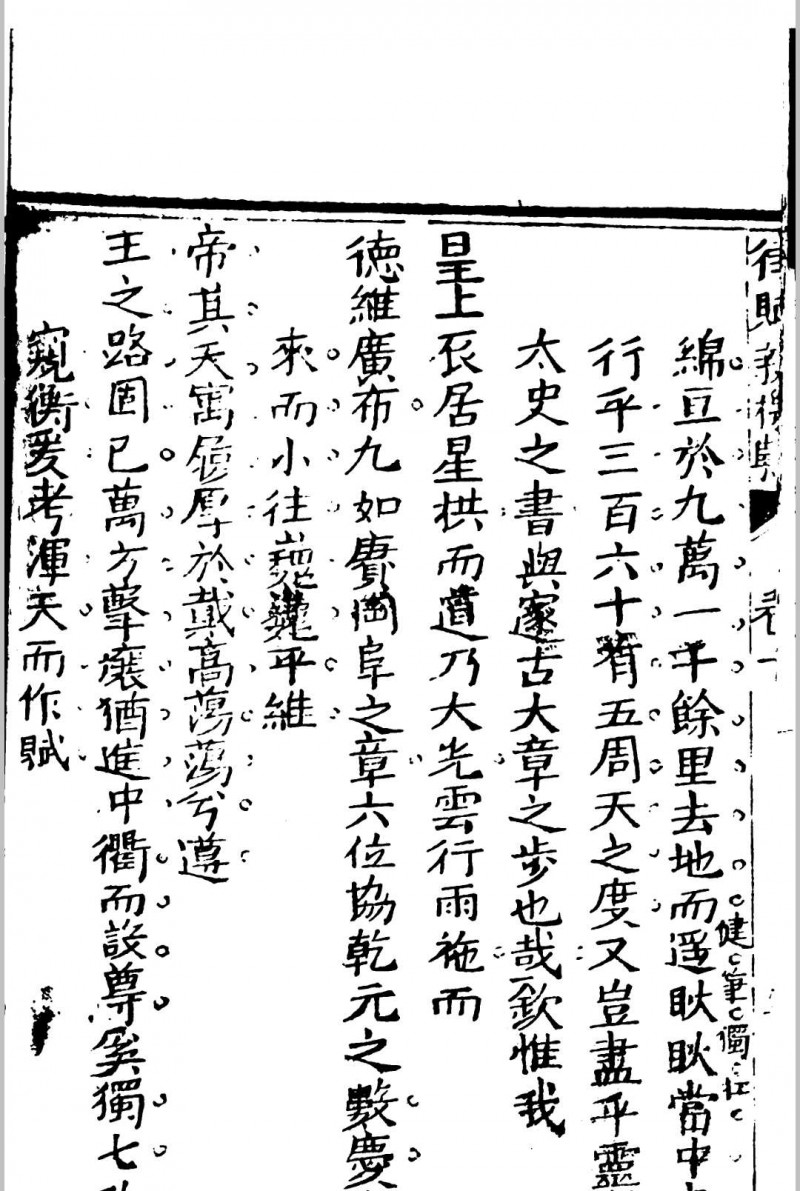 律賦
卷十
綿亘於九萬一千餘里去地而遥耿耿當中
健筆獨扛
行乎三百六十有五周天之度又豈盡乎靈
太史之書與邃古大章之步也哉欽惟我
皇上辰居星拱而道乃大光雲行雨施而
德維廣布九如賡岡阜之章六位協乾元之數慶
來而小往巍巍乎維
帝其天寓履厚於戴高蕩蕩兮遵
王之路固已萬方擊壤猶進中衢而設尊奚獨七
窺衡爰考渾天而作賦